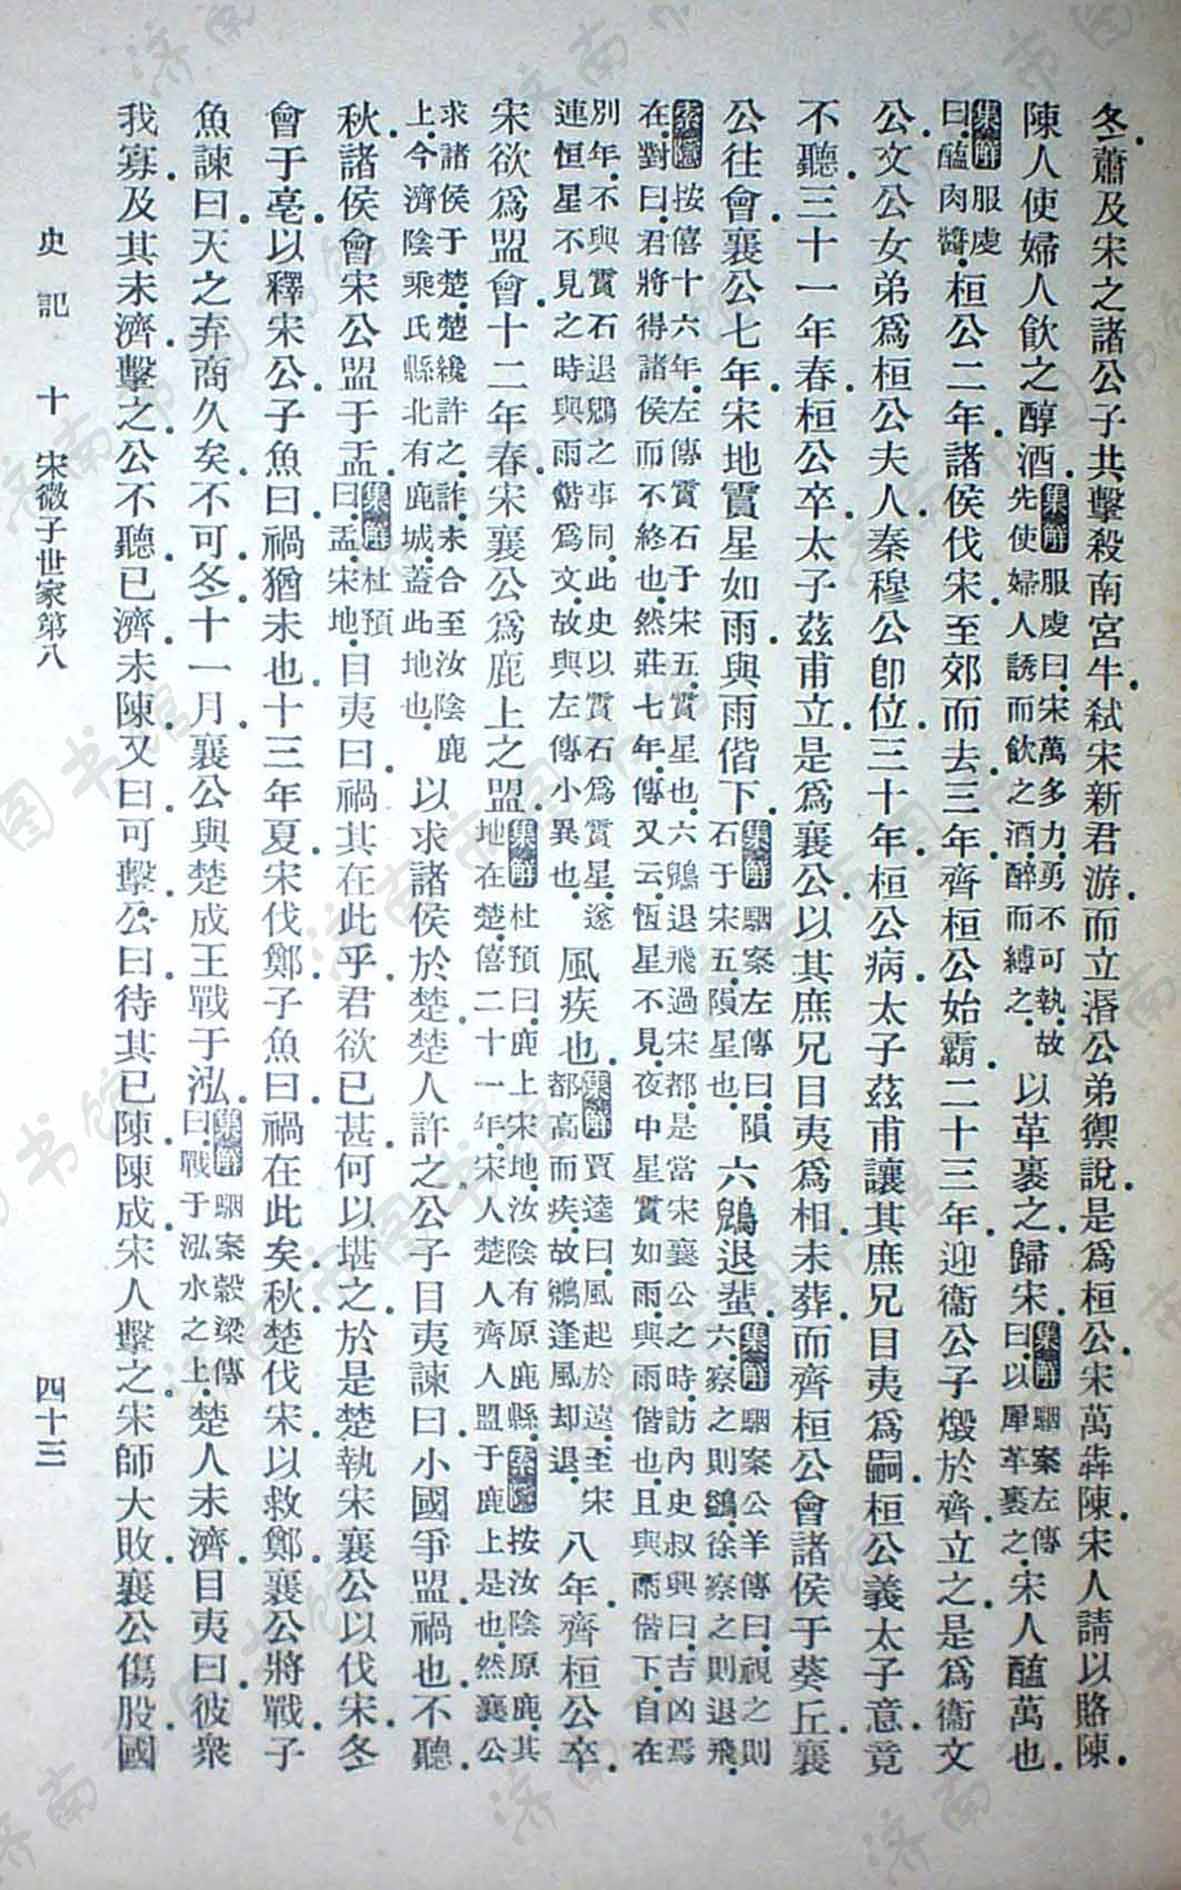 冬.蕭及宋之諸公子共擊殺南宮牛.弑宋新君游.而立湣公弟禦說.是爲桓公.宋萬犇陳.宋人請以賂陳.
陳人使婦人飲之醇酒.集解服虔曰.宋萬多力.勇不可執.故先使婦人誘而飲之酒.醉而縛之.以革裹之.歸宋.集解駰案左傳曰.以犀革裹之.宋人醢萬也.
集解服虔曰.醢肉醬.桓公二年.諸侯伐宋.至郊而去.三年.齊桓公始霸.二十三年.迎衞公子燬於齊.立之.是爲衞文
公.文公女弟爲桓公夫人.秦穆公卽位.三十年.桓公病.太子茲甫讓其庶兄目夷爲嗣.桓公義太子意.竟
不聽.三十一年春.桓公卒.太子茲甫立.是爲襄公.以其庶兄目夷爲相.未葬.而齊桓公會諸侯于葵丘.襄
公往會.襄公七年.宋地霣星如雨.與雨偕下.集解駰案左傳曰.隕石于宋五.隕星也.六鶂退蜚.集解駰案公羊傳曰.視之則六.察之則鷁.徐察之則退飛.
索隱按僖十六年.左傳霣石于宋五.霣星也.六鶂退飛過宋都.是當宋襄公之時.訪內史叔興曰.吉凶焉在.對曰.君將得諸侯而不終也.然莊七年.傳又云.恆星不見.夜中星霣如雨.與雨偕也.且與雨偕下.自在
別年.不與霣石退鶂之事同.此史以霣石爲霣星.遂連恒星不見之時與雨偕爲文.故與左傳小異也.風疾也.集解賈逵曰.風起於遠.至宋都高而疾.故鶂逢風却退.八年.齊桓公卒.
宋欲爲盟會.十二年春.宋襄公爲鹿上之盟.集解杜預曰.鹿上宋地.汝陰有原鹿縣.索隱按汝陰原鹿.其地在楚.僖二十一年.宋人楚人齊人盟于鹿上是也.然襄公
求諸侯于楚.楚纔許之.計未合至汝陰鹿上.今濟陰乘氏縣北有鹿城.蓋此地也.以求諸侯於楚.楚人許之.公子目夷諫曰.小國爭盟.禍也.不聽.
秋.諸侯會宋公盟于盂.集解杜預曰.盂.宋地.目夷曰.禍其在此乎.君欲已甚.何以堪之.於是楚執宋襄公以伐宋.冬
會于亳.以釋宋公.子魚曰.禍猶未也.十三年夏.宋伐鄭.子魚曰.禍在此矣.秋.楚伐宋.以救鄭.襄公將戰.子
魚諫曰.天之弃商久矣.不可.冬.十一月.襄公與楚成王戰于泓.集解駰案穀梁傳曰.戰于泓水之上.楚人未濟.目夷曰.彼衆
我寡.及其未濟.擊之.公不聽.已濟.未陳.又曰.可擊.公曰.待其已陳.陳成.宋人擊之.宋師大敗.襄公傷股.國
史記 十 宋微子世家第八 四十三